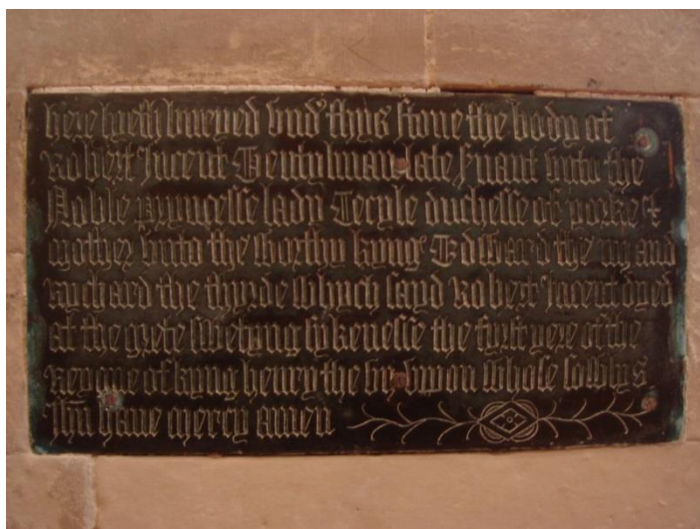 here lyeth buryed und' thys stone the body of
Robert Incent Gentylman late s'vaunt unto the
Noble pryncesse lady Cecyle duchesse of yorke &
mother unto the worthy kyng Edward the iiij and
Rychard the thyrde which sayd Robert Incent dyed
at the grete swetyng sykenesse the fyrst yere of the
reygne of kyng henry the vij upon whose sowlys
Jhu have mercy amen